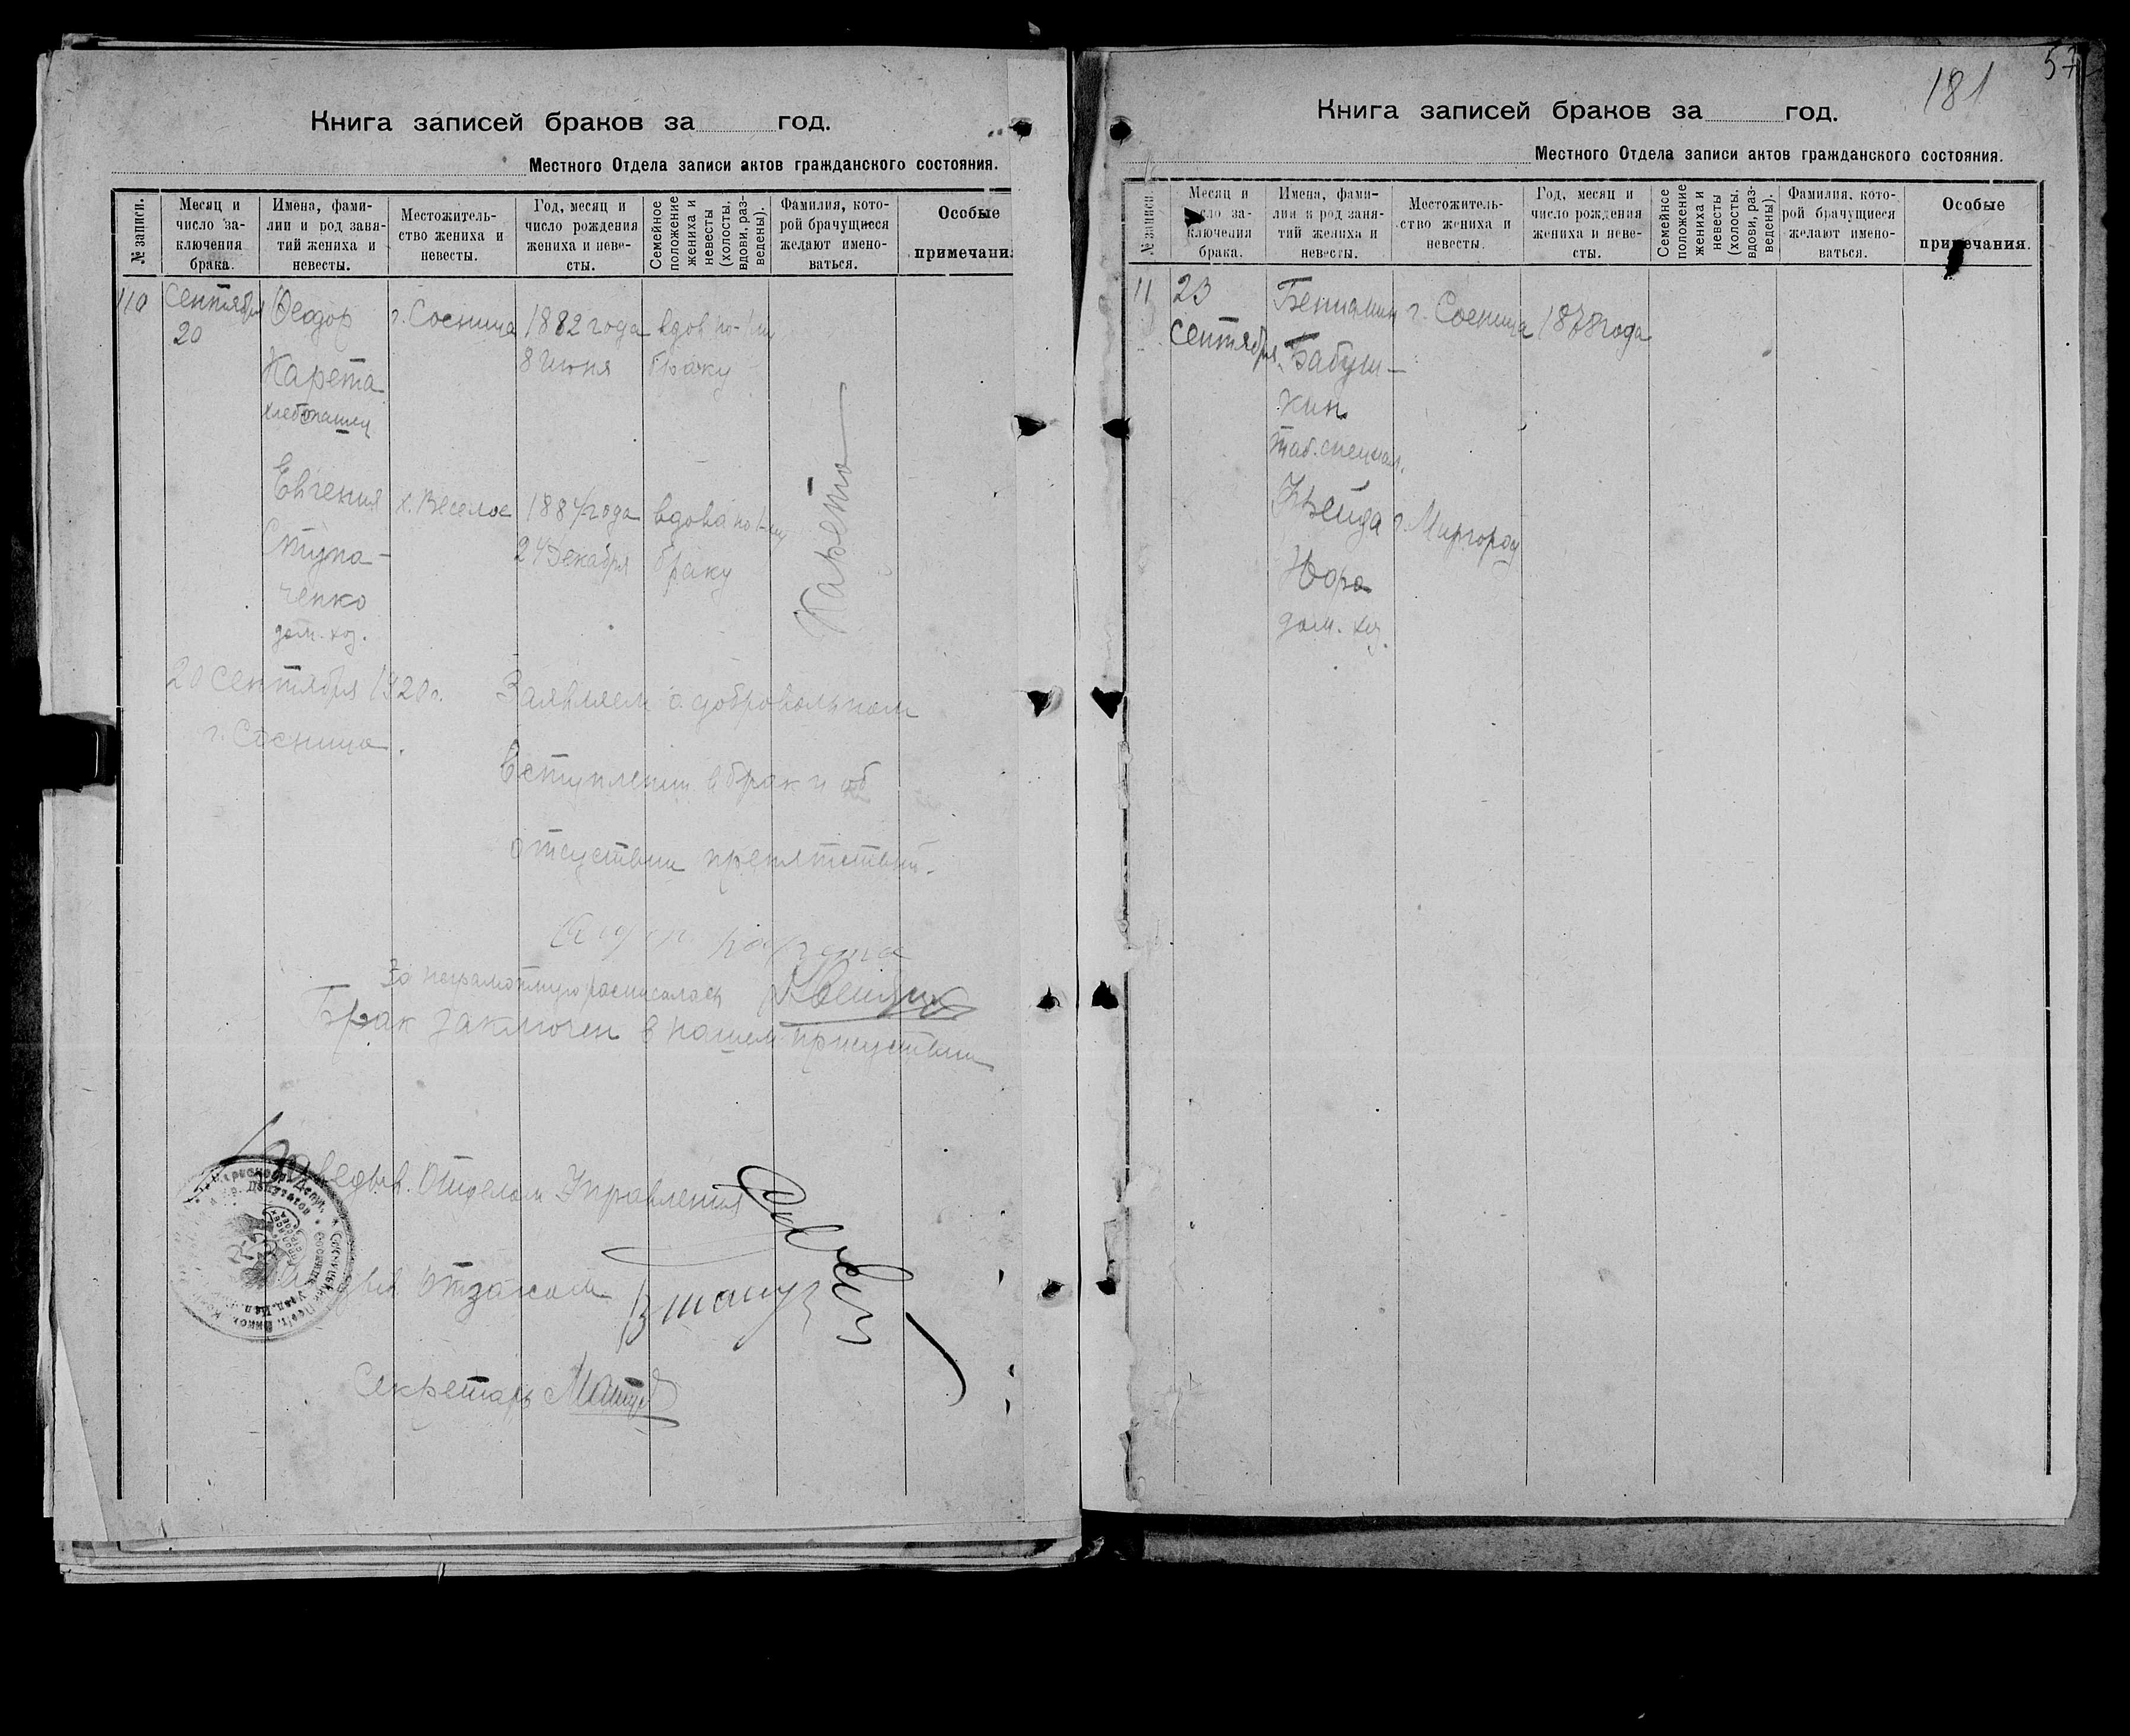 Книга записей браков за год.
Местного Отдела записи актов гражданского состояния.
№ записи.
Месяц и
число за-
ключения
брака.
Имена, фами-
лии и род заня-
тий жениха и
невесты.
Местожитель-
ство жениха и
невесты.
Год, месяц и
число рождения
жениха и неве-
сты.
Семейное
положение
жениха и
невесты
(холосты,
вдови, раз-
ведены).
Фамилия, кото-
рой брачущиеся
желают имено-
ваться.
Особые
примечани
110
Сентября
20
Феодор
Карета
хлебопашец
г. Сосница
1882 года
8 июня
вдов по
браку
Евгения
Ступа-
ченко
дом. хоз.
х. Веселое
1884 года
24 декабря
вдова по
браку
Карета
20 Сентября 1920 г.
г. Сосница.
Заявляем о добровольном
вступлении в брак и об
отсуствии препятствий.
Карета
За неграмотную расписалась
Брак заключен в нашем присуствии
Заведыв. Отделом Управления
Отзаком
Секретарь
181
57
Книга записей браков за год.
Местного Отдела записи актов гражданского состояния.
№ записи
Месяц и
число за-
ключения
брака.
Имена, фами-
лии и род заня-
тий жениха и
невесты.
Местожитель-
ство жениха и
невесты.
Год, месяц и
число рождения
жениха и неве-
сты.
Семейное
положение
жениха и
невесты
(холосты,
вдови, раз-
ведены).
Фамилия, кото-
рой брачущиеся
желают имено-
ваться.
Особые
примечания.
11
23
Сентября
Бениамин
Бабуш-
кин
г. Сосница
1878 года
г. Миргород
дом. хоз.